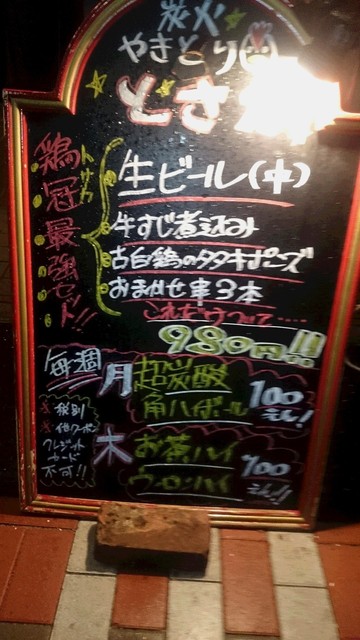 炭火
やきとり
とさ
鶏冠最強セット!!
トサカ
生ビール(中)
牛すじ煮込み
古白鶏のタタキポーズ
おまかせ串3本
これだけつけて....
980円!!
毎週
月 超炭酸
角ハイボール
100えん!
木 お茶ハイ
ウーロンハイ
100えん!!
※税別
※他クーポン
クレジット
カード
不可!!